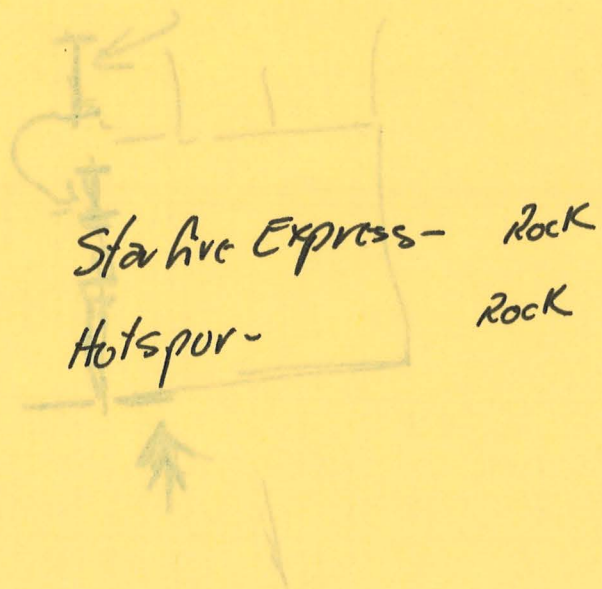 Starfire Express- Rock
Hotspur- Rock